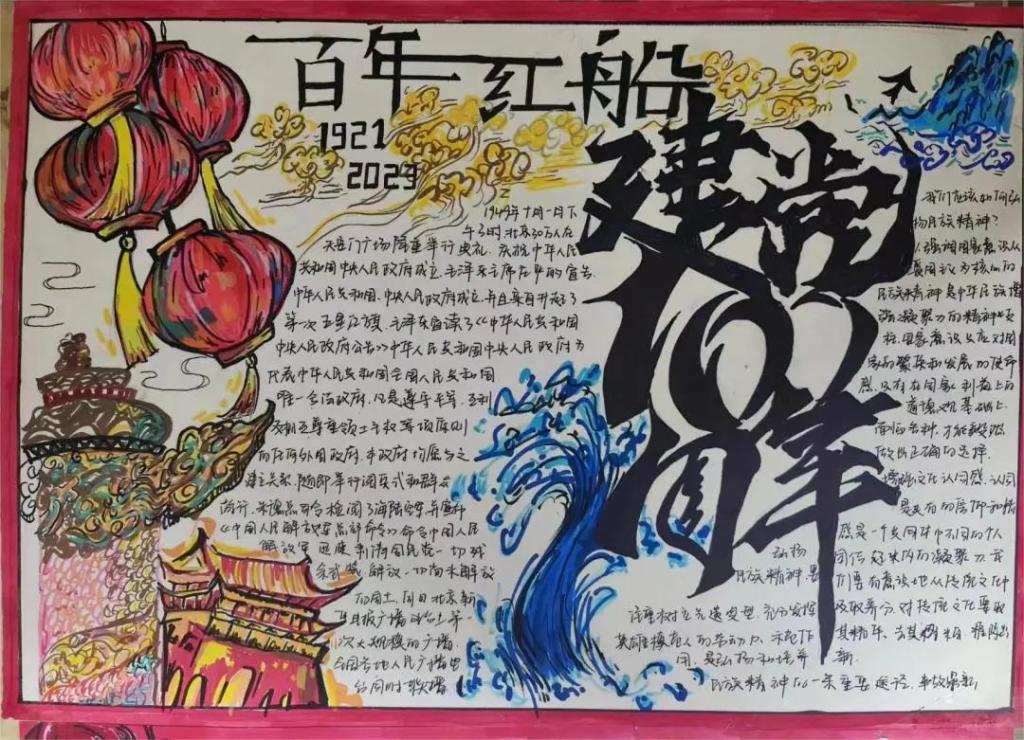 百年红船
1921
2029
建党
100
周年
1949年十月一日下
午3时北京30万人在
天安门广场隆重举行典礼 庆祝中华人民
共和国中央人民政府成立 毛泽东主席庄严的宣告
中华人民共和国、中央人民政府成立 并且亲自升起了
第一次五星红旗 毛泽东宣读了《中华人民共和国
中央人民政府公告》中华人民共和国中央人民政府为
代表中华人民共和国全国人民共和国
唯一合法政府 凡是遵守平等、互利
及相互尊重领土主权等项原则
的任何外国政府 本政府均愿与之
建立关系 随即举行阅兵式和群众
游行 检阅了海陆空军
《中国人民解放军总部命令》命令中国人民
解放军 迅速 国民党一切残
解放一切尚未解放
的国土 同日北京新
一
次大规模的广播
全国各地人民广播电
台同时联播
我们应该如何弘
扬民族精神?
1.强祖国意识从
爱国主义为核心的
民族精神是中华民族
凝聚力的精神
国家意识
家的繁荣和发展的使命
感 只有在国家利益上的
基础上
才能
做出正确的选择
增强文化认同感 认同
感是一个共同体中不同的个人
团结 的凝聚力 我
们要有意识地从传统文化中
吸取养分 对传统文化要取
其精华 去其糟粕 推陈出
新
弘扬
民族精神要
注重树立先进典型 充分发挥
英雄模范人的 力 示范作
用 是弘扬和培养
民族精神的一条重要途径